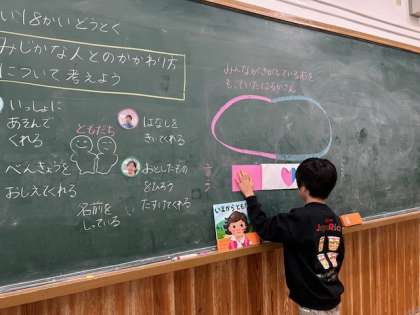 い18かいどうとく
みじかな人とのかかわり方
について考えよう
いっしょに
あそんで
くれる
べんきょうを
おしえてくれる
ともだち
名前を
しっている
はなしを
きいてくれる
おとしたもの
をひろう
たすけてくれる
みんながさがしているものを
もっていたはるかさん